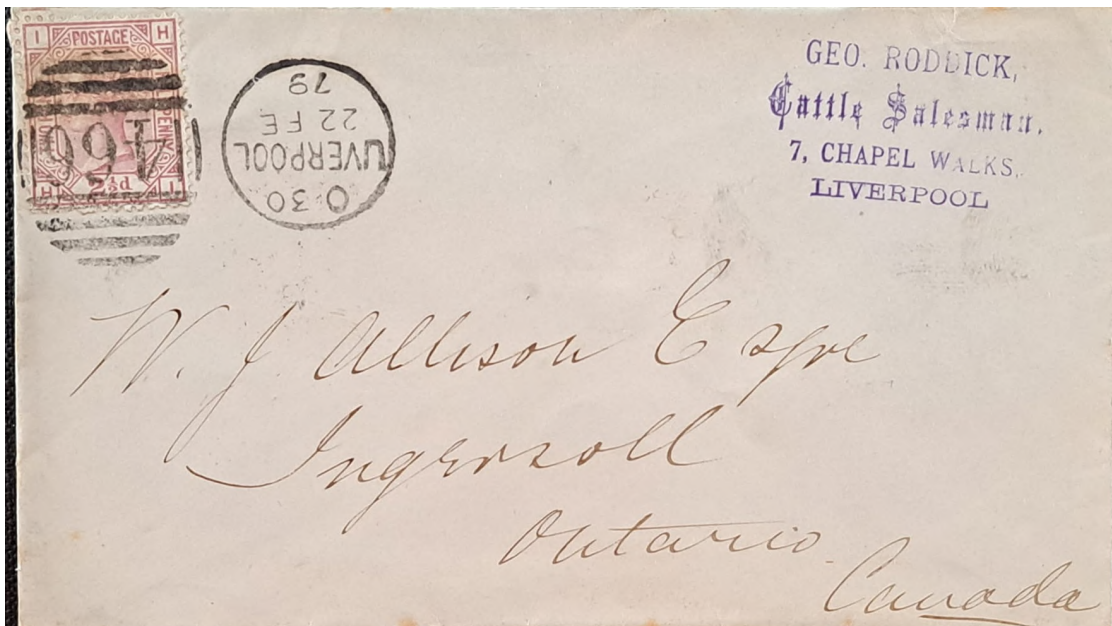 I POSTAGE H
PENNY
H 2½d I
466
0 30
LIVERPOOL
22 FE
79
GEO. RODDICK,
Cattle Salesman.
7, CHAPEL WALKS,
LIVERPOOL
W. J. Allison Esqre
Ingersoll
Ontario
Canada